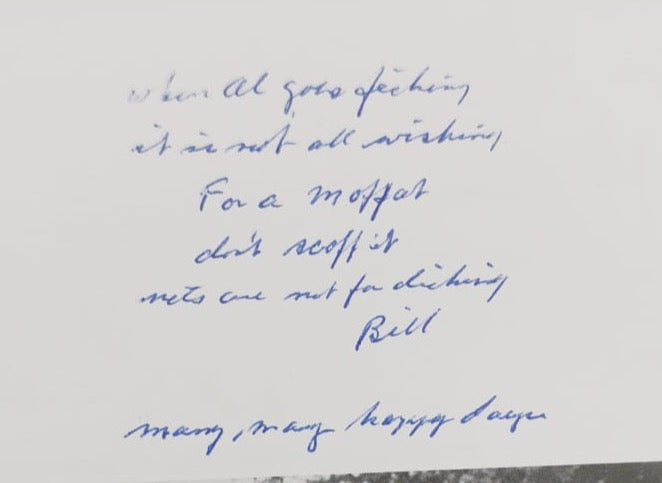 when Al goes fishing
it is not all wishing
For a Moffat
don't scoff it
nets are not for dishing
Bill
many, many happy days